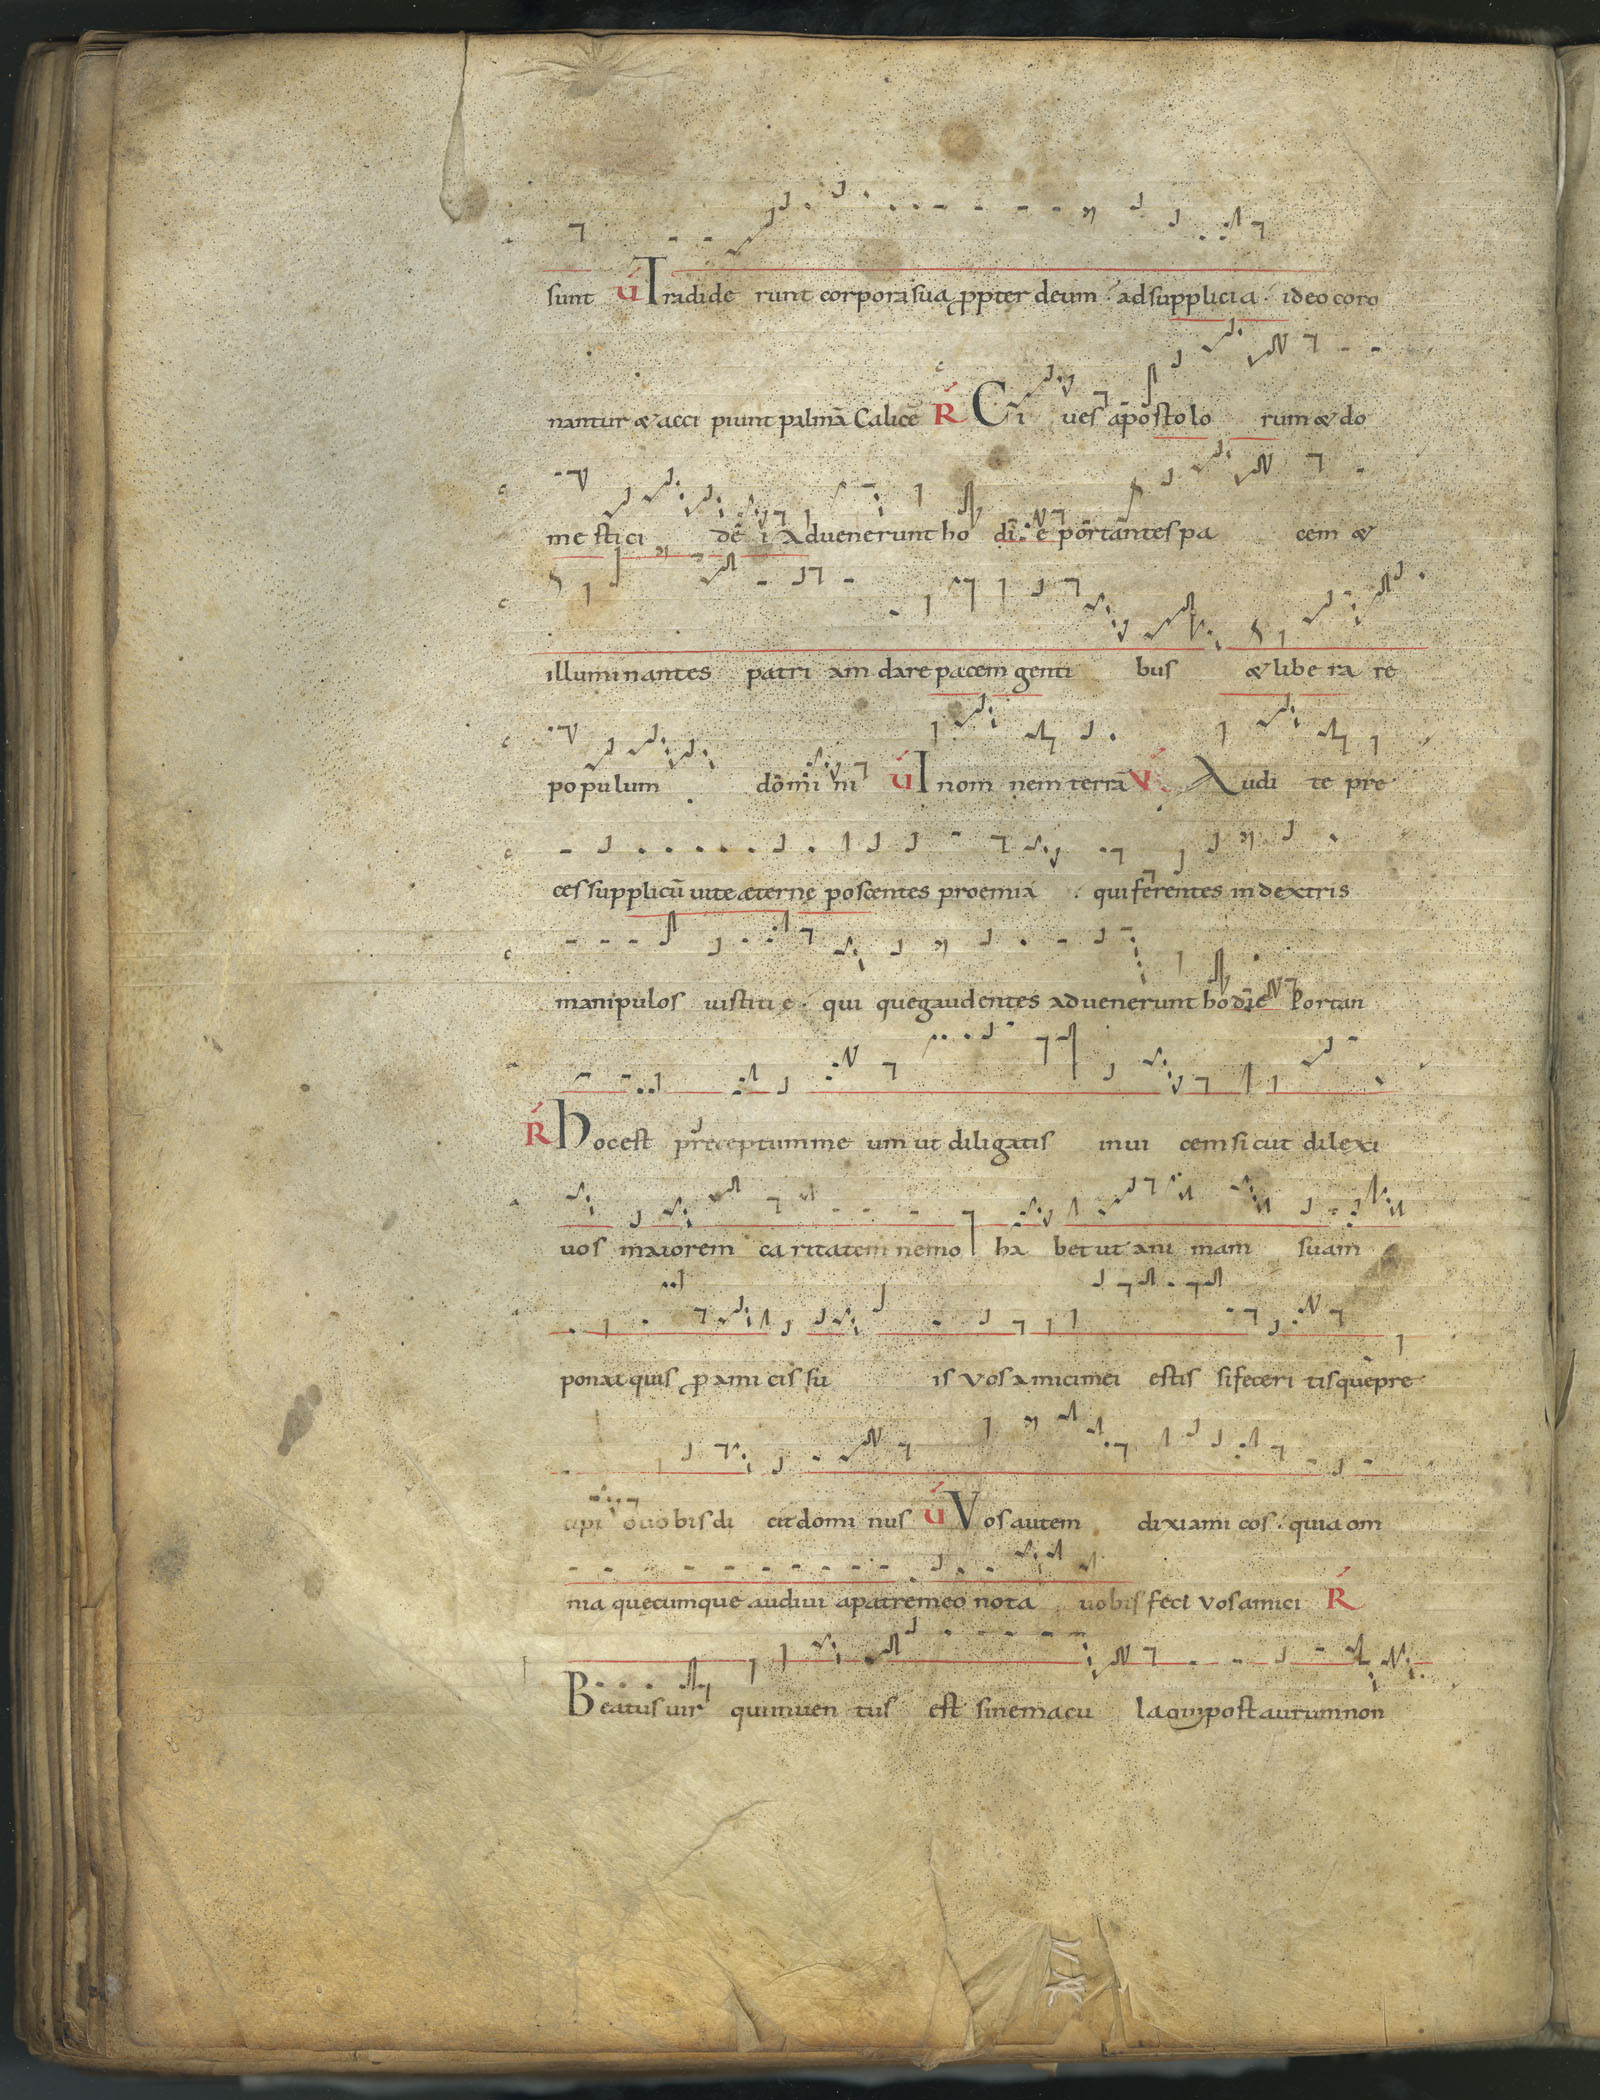 sunt V́ Tradide runt corpora sua ꝓpter deum · ad supplicia · ideo coro
nantur & acci piunt palmā Calicē Ŕ Ci ues aposto lo rum & do
me sti ci dē i Aduenerunt ho di e portantes pa cem &
illumi nantes patri am dare pacem genti bus & libe ra re
po pulum dōmi ni V́ In om nem terrā V́ Audi te pre
ces supplicū uite æterne poscentes proemia · qui ferentes in dextris
manipulos iustiti e · qui que gaudentes aduenerunt hodie Portan
Ŕ Hoc est preceptum me um ut diligatis inui cem sicut dilexi
uos maiorem ca ritatem nemo ha bet ut ani mam suam
ponat quis ꝓ ami cis su is Vos amici mei estis si feceri tis que pre
cipi o uobis di cit domi nus V́ Vos autem dixi ami cos · quia om
nia quecumque audiui a patre meo nota uobis feci Vos amici Ŕ
Beatus uir qui inuen tus est sine macu la qui post aurum non